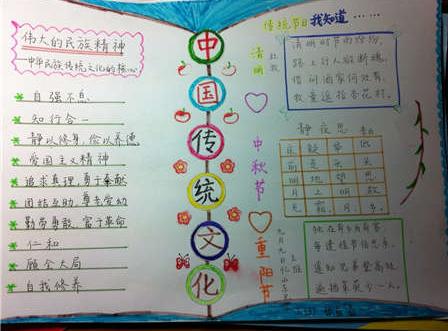 伟大的民族精神
—中华民族传统文化的核心
自强不息
知行合一
静以修身，俭以养德
爱国主义精神
追求真理，勇于奉献
团结互助，尊老爱幼
勤劳勇敢，富于革命
仁和
顾全大局
自我修养
中国传统文化
传统节日我知道……
清明
杜牧
清明时节雨纷纷，
路上行人欲断魂。
借问酒家何处有，
牧童遥指杏花村。
中秋节
静夜思
床疑举低
前是头头
明地望思
月上明故
光霜月乡
重阳节
九月九日忆山东兄弟
王维
独在异乡为异客，
每逢佳节倍思亲。
遥知兄弟登高处，
遍插茱萸少一人。